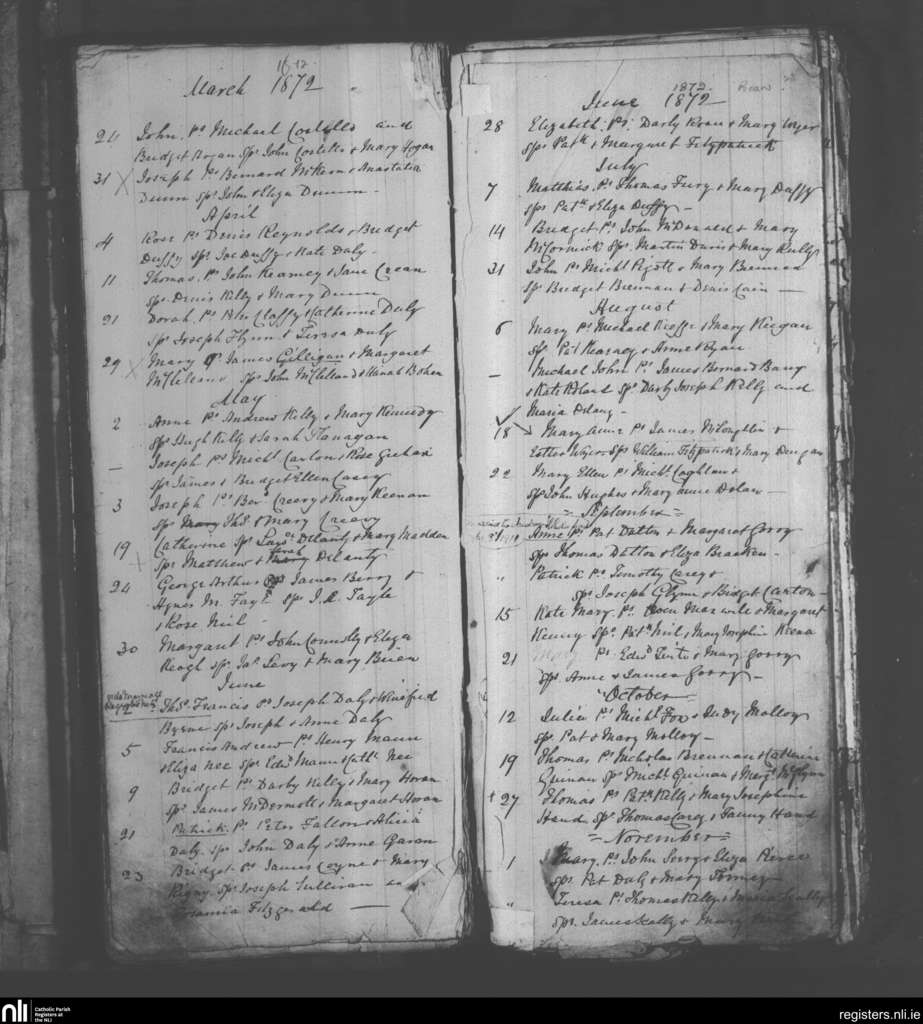 1872
March 1872
24 John. Ps Michael Costello and
Bridget Hogan Sps John Costello & Mary Hogan
31 Joseph Ps Bernard McKeon & Anastatia
Dunn Sps John & Eliza Dunn.
April
4 Rose Ps Denis Reynolds & Bridget
Duffy Sps Joe Duffy & Kate Daly.
11 Thomas. Ps John Kearney & Jane Crean
Sps. Denis Kilby & Mary Dunn
21 Dorah. Ps Claffy & Catherine Daly
Sps Joseph Flynn & Teresa Daly
29 Mary Ps James Gilligan & Margaret
McClelland Sps John McClelland & Hanah Bohen
May
2 Anne Ps Andrew Kelly & Mary Kennedy
Sps Hugh Kelly & Sarah Flanagan
— Joseph Ps Michl Carlon & Rose
Sps James & Bridget Ellen Casey
3 Joseph Ps Bend Creevy & Mary Keenan
Sps Mary Ths. & Mary Creevy
19 Catherine Sps Delanty & Mary Madden
Sps Matthew & Sarah Delanty
24 George Arthur Ps James Berry &
Agnes M. Sps J. R. Tayle
& Rose Neil
30 Margaret Ps John Connolly & Eliza
Keogh Sps Jas Levy & Mary Brien
June
Ths. Francis Ps Joseph Daly & Winifred
Byrne Sps Joseph & Anne Daly
5 Francis Andrew Ps Henry Mann
& Eliza Nee Sps Edwd Mann & Cath. Nee
9 Bridget Ps Darby Kelly & Mary Horan
Sps James McDermott & Margaret Horan
21 Patrick. Ps Peter Fallon & Alicia
Daly. Sps John Daly & Anne Garan
23 Bridget Ps James Coyne & Mary
Sps Joseph Sullivan and
Fitzgerald
1872
June 1872
28 Elizabeth. Ps. Darby Kean & Mary Wyer
Sps Patk & Margaret Fitzpatrick
July
7 Matthias Ps Thomas Fury & Mary Duffy
Sps Patk & Eliza Duffy —
14 Bridget Ps John McDonald & Mary
McCormick Sps. Martin Davis & Mary Kelly
31 John Ps Michl Pigott & Mary Brennan
Sps Bridget Brennan & Denis Cain —
August
6 Mary Ps Michael Keeffe & Mary Keegan
Sps Pat Kearney & Anne Egan
— Michael John Ps James Bernard Barry
& Kate Sps Darby Joseph Kelly and
Maria Delany —
18 Mary Anne Ps James McLoughlin &
Esther Wyer Sps William Fitzpatrick & Mary Dungan
22 Mary Ellen Ps Michl Coghlan &
Sps John Hughes & Mary Anne Dolan —
= September =
Anne Ps Pat Dutton & Margaret Gorry
Sps Thomas Dutton & Eliza Bracken —
" Patrick Ps. Timothy Carey &
Sps Joseph Glynn & Bridget Carton —
15 Kate Mary. Ps. Owen & Margaret
Kenny Sps. Patk Neil & Mary Josephine Keena
21 Mary Ps Edwd & Mary Gorry
Sps Anne & James Gorry —
October
12 Julia Ps Michl Fox & Judy Molloy
Sps Pat & Mary Molloy —
19 Thomas Ps Nicholas Brennan & Catherine
Guinan Sps Michl Guinan & Margt McGlynn
+ 27 Thomas Ps Patk Kelly & Mary Josephine
Hand Sps Thomas Carey & Fanny Hand
= November =
1 Mary. Ps John & Eliza
Sps Pat Daly & Mary
" Teresa Ps Thomas Kelly & Maria Scally
Sps. James Scally & Mary
nli
Catholic Parish
Registers at
the NLI
registers.nli.ie